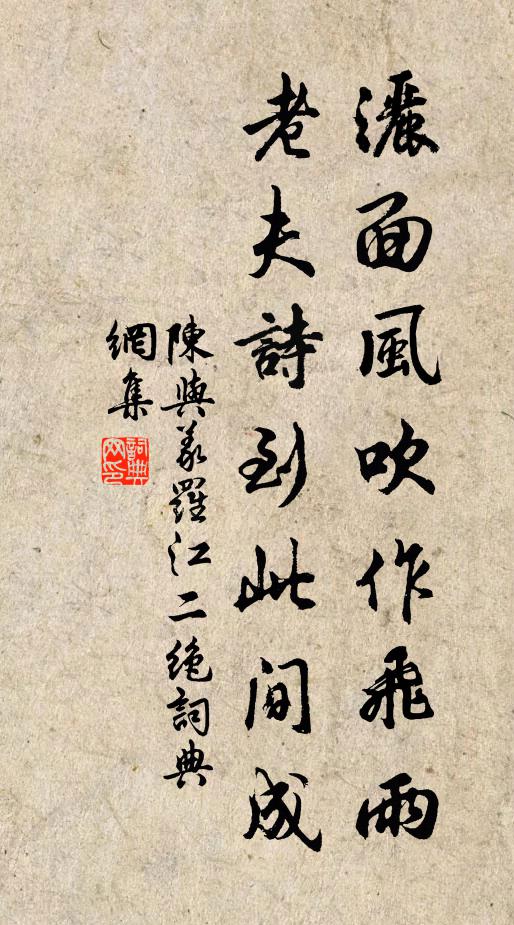 灑面風吹作飛雨
老夫詩到此間成
陳與義羅江二絶詞典
網集
詞典網印